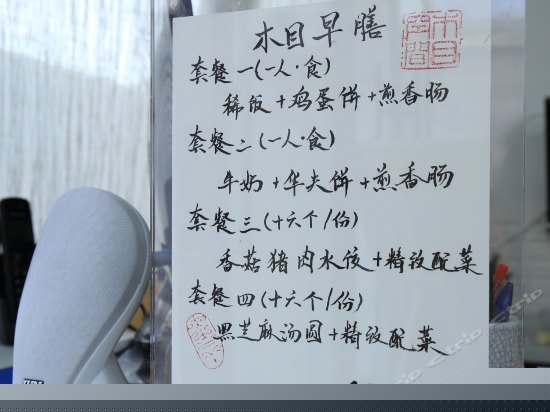 木目早膳
木目空間
套餐一(一人·食)
稀饭+鸡蛋饼+煎香肠
套餐二(一人·食)
牛奶+华夫饼+煎香肠
套餐三(十六个/份)
香菇猪肉水饺+精致配菜
套餐四(十六个/份)
黑芝麻汤圆+精致配菜